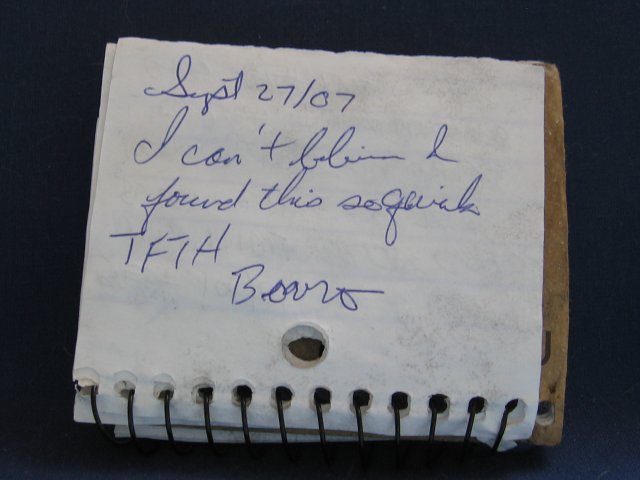 Sept 27/07
I can't believe I
found this so quick
TFTH